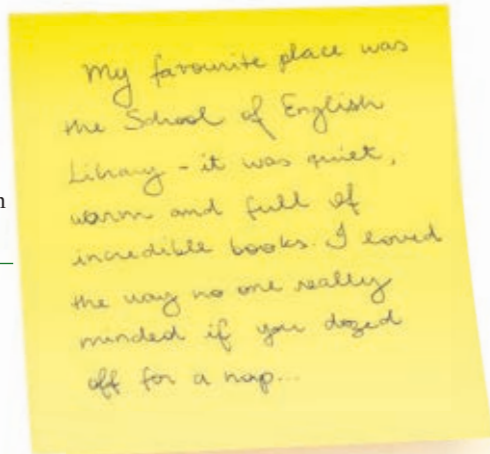 My favourite place was
the School of English
Library - it was quiet,
warm and full of
incredible books. I loved
the way no one really
minded if you dozed
off for a nap...